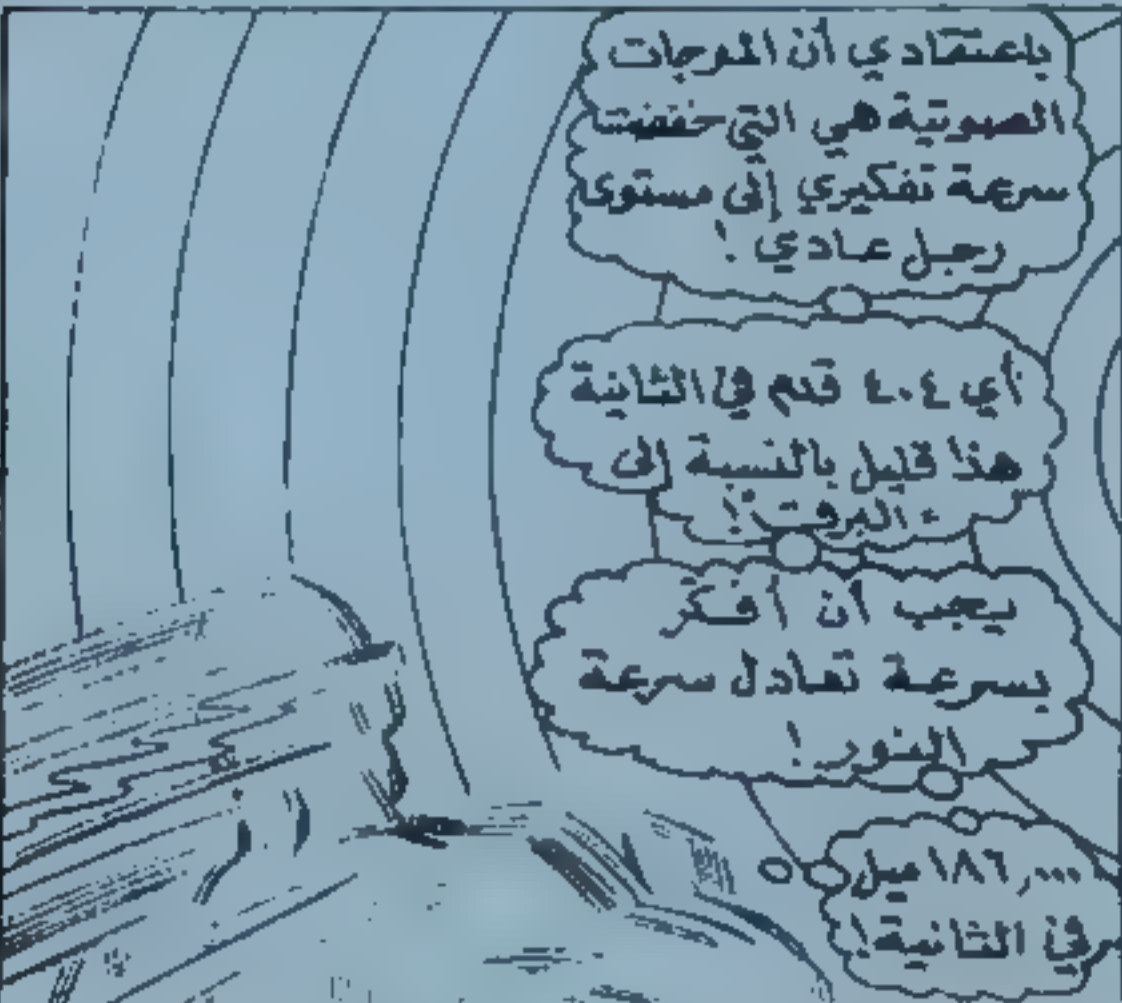 باعتقادي أن الموجات
الصوتية هي التي خففت
سرعة تفكيري إلى مستوى
رجل عادي !
أي ٤٠٤ قدم في الثانية
هذا قليل بالنسبة إلى
"البرق" !
يجب أن أفكر
بسرعة تعادل سرعة
النور !
١٨٦,٠٠٠ ميل
في الثانية !